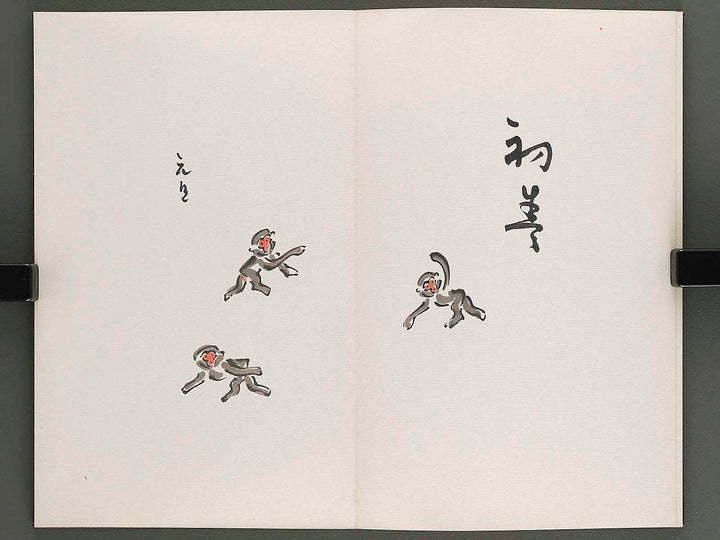 初春
元旦